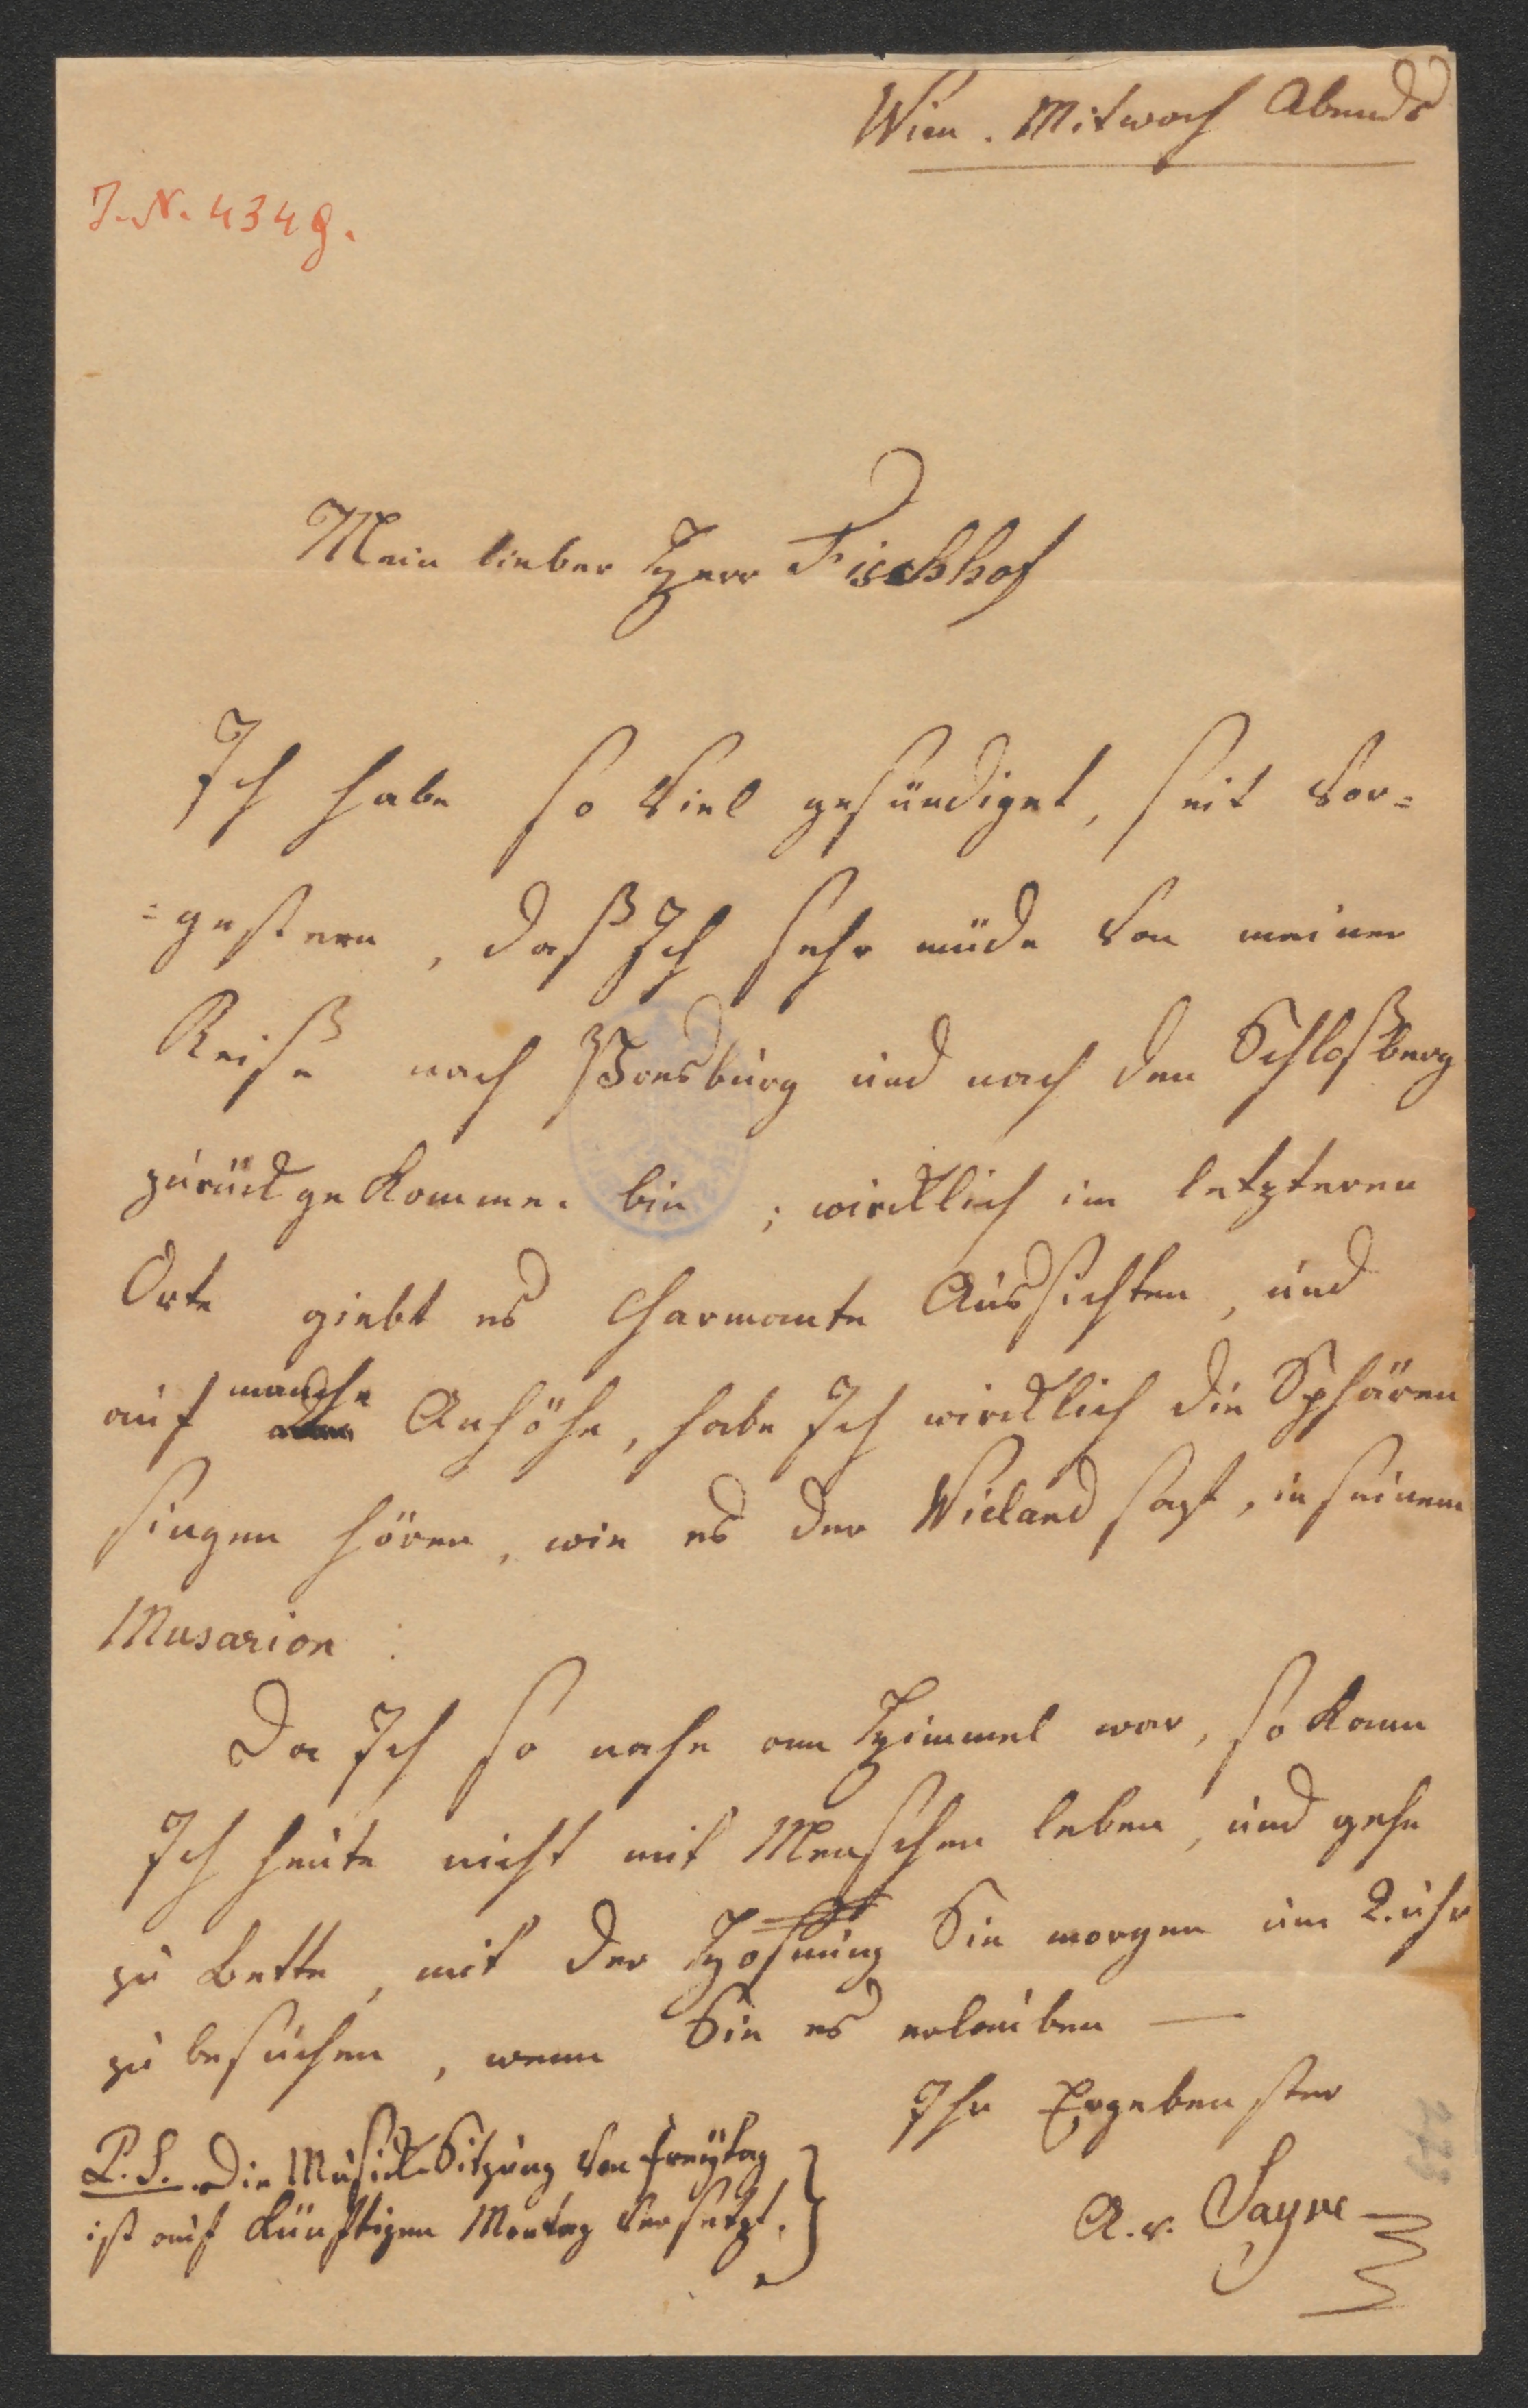 Wien. Mitwoch Abends
J. N. 4349.
Mein lieber Herr Fischhof
Ich habe so viel gesündiget, seit vor=
=gestern, daß Ich sehr müde von meiner
Reiße nach Presburg und nach den Schloßberg
zurückgekommen bin; wircklich im letzteren
Orte giebt es Charmante Aussichten, und
auf manche Anhöhe, habe Ich wircklich die Sphären
singen hören, wie es der Wieland sagt, in seinem
Musarion:
Da Ich so nahe am Himmel war, so kann
Ich heute nicht mit Menschen leben, und gehe
zu Bette, mit der Hofnung Sie morgen um 2. uhr
zu besuchen, wenn Sie es erlauben —
Ihr Ergebenster
A. v. Sayve
P. S. Die Musick-Sitzung von Freÿtag
ist auf künftigen Montag versetzt.